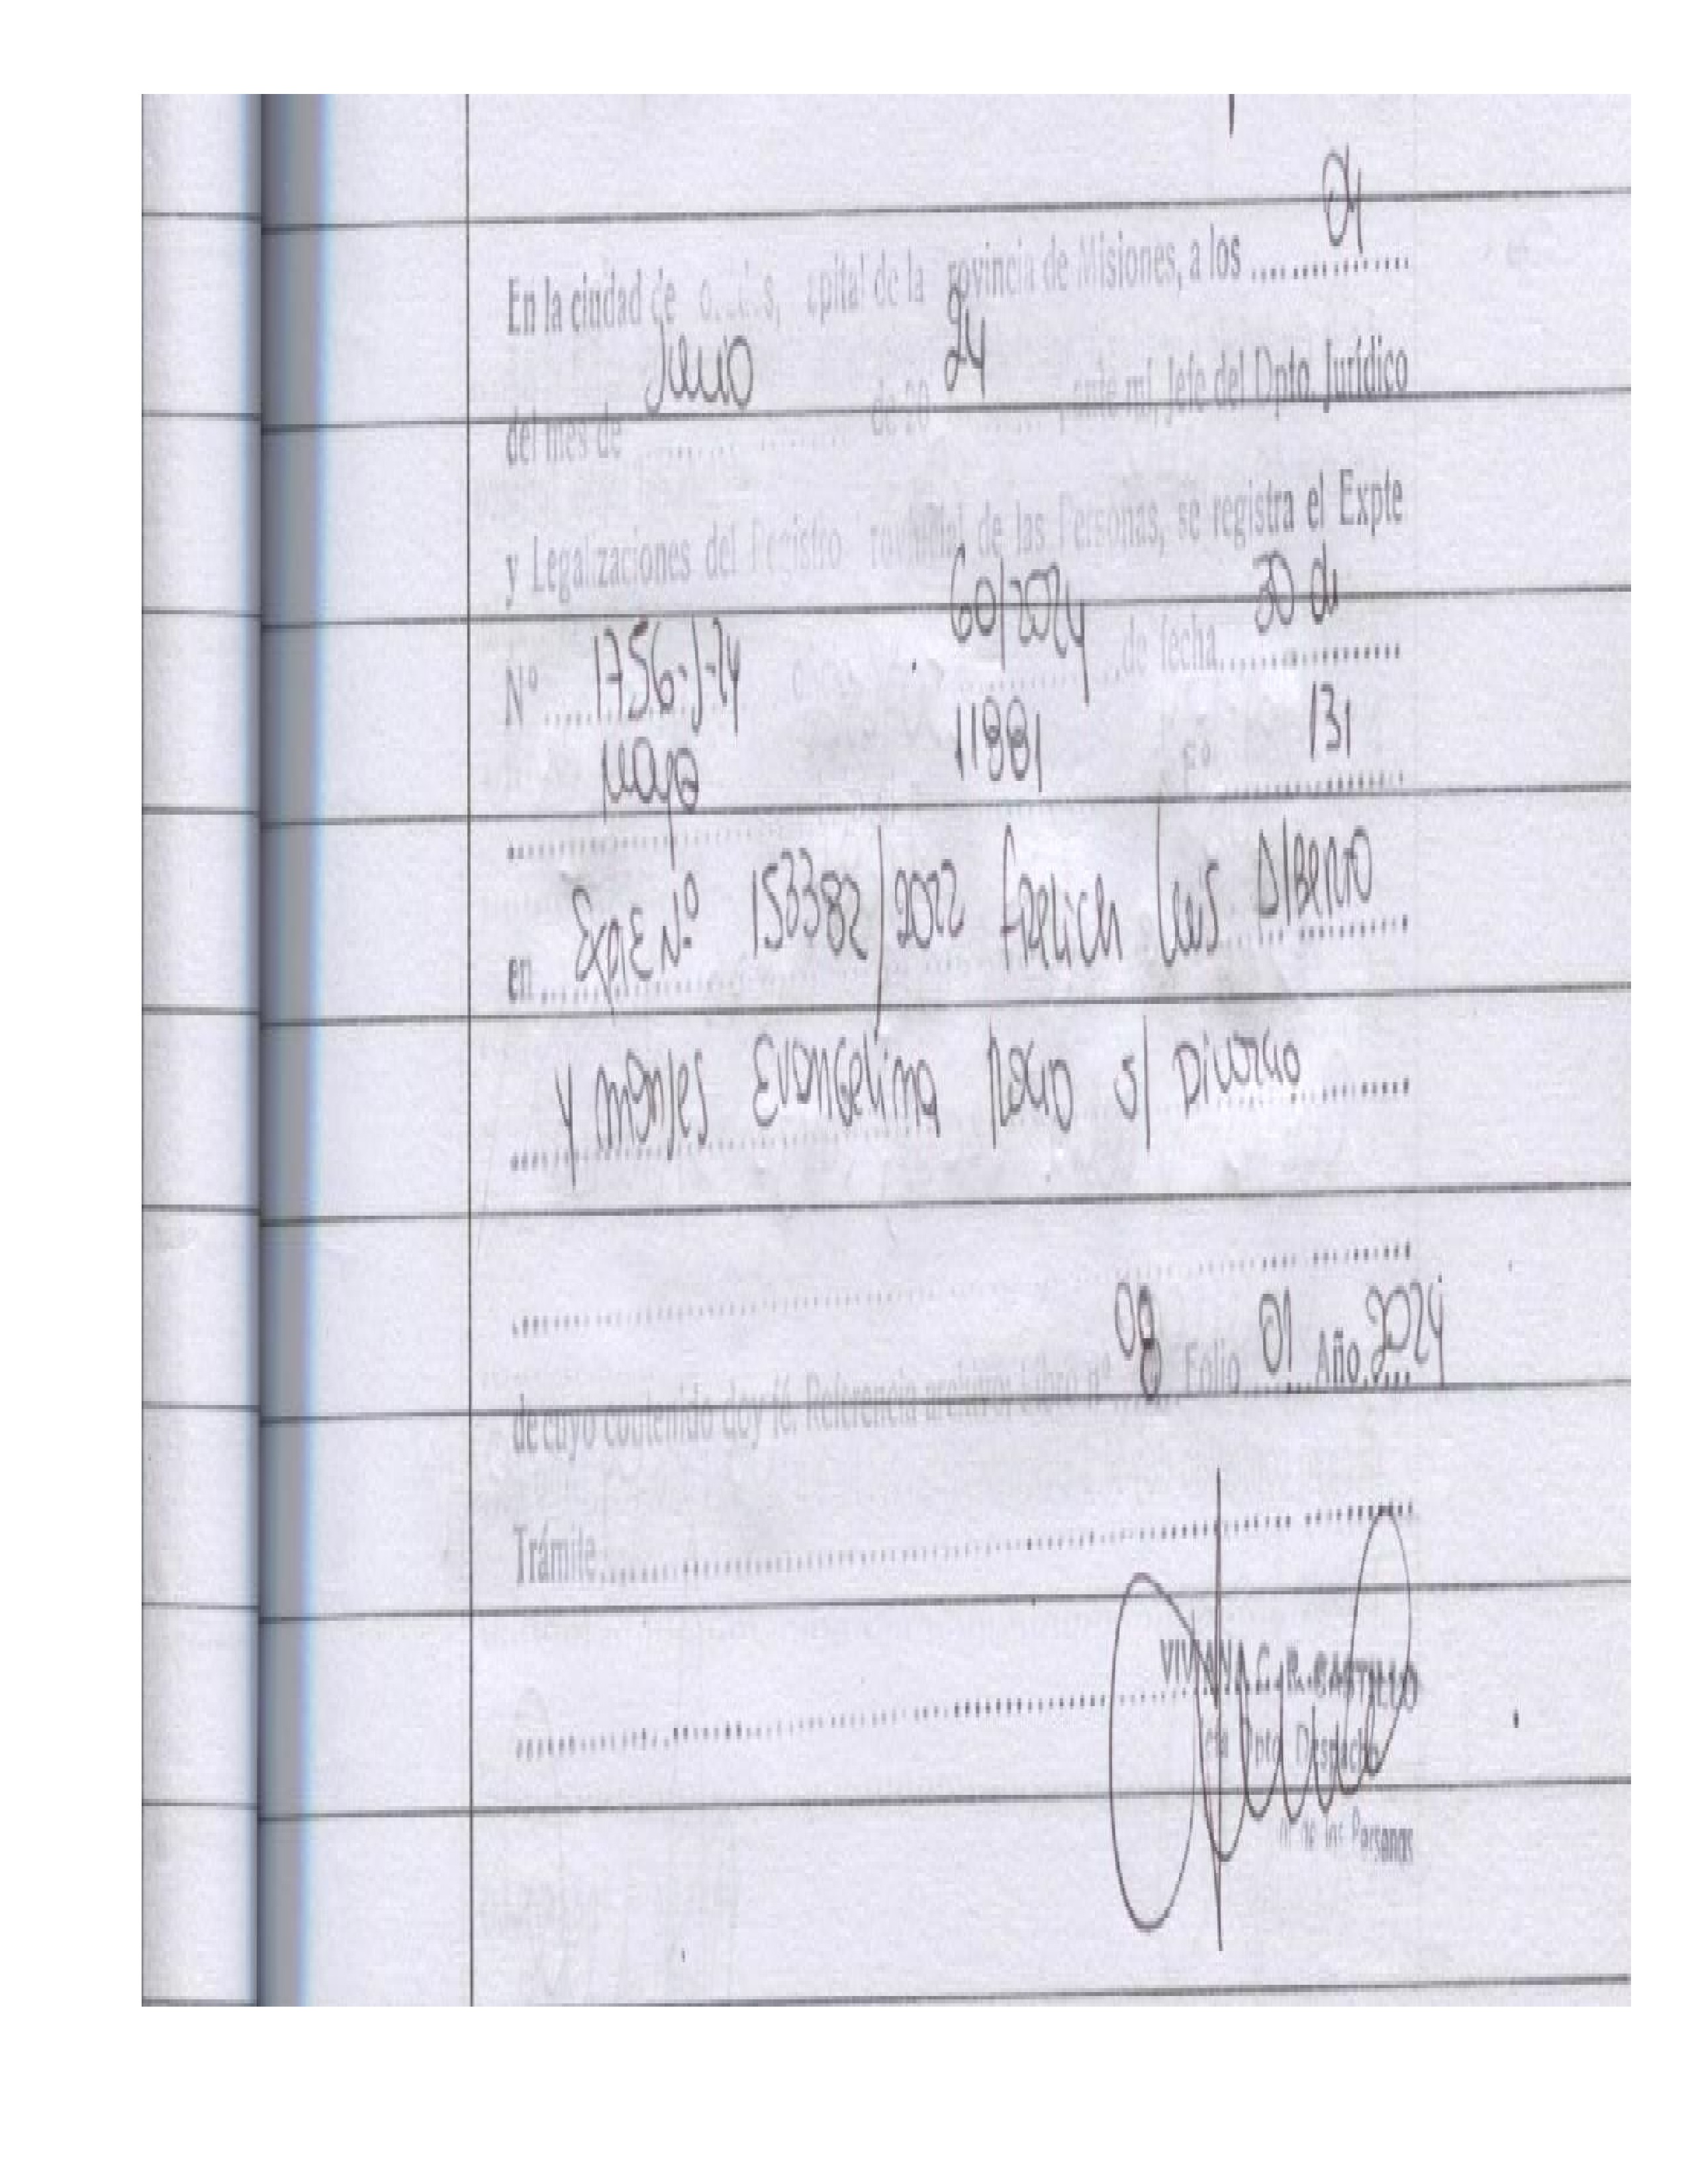 En la ciudad de capital de la Provincia de Misiones, a los 04
del mes de Junio de 20 24 ante mí, Jefe del Dpto. Jurídico
y Legalizaciones del Registro Provincial de las Personas, se registra el Expte
Nº 1756-J-24 60/2024 de fecha 30 de
Mayo 11881 Fº 131
en Expte Nº 153382/2022 Luis Alberto
y Monjes Evangelina Rocio s/ Divorcio
de cuyo contenido doy fé. Referencia archivo: Libro nº 08 Folio 01 Año 2024
Trámite
VIVIANA C. R. CASTILLO
Jefa Dpto. Despacho
de las Personas